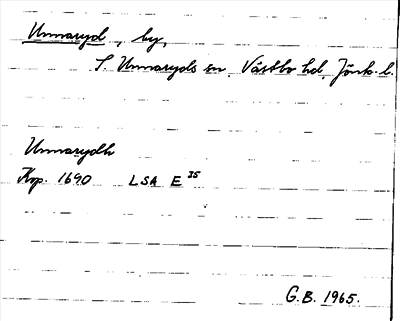 Unnaryd, by,
S. Unnaryds sn, Västbo hd, Jönk. l.
Unnarydh
Kop. 1690 LSA E 35
G.B. 1965.